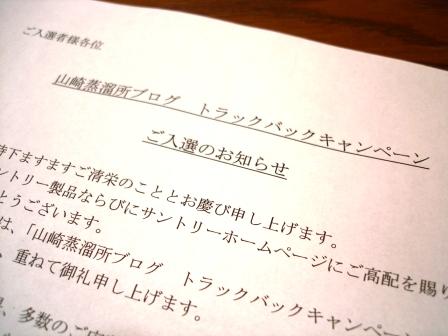 ご入選者様各位
山崎蒸溜所ブログ　トラックバックキャンペーン
ご入選のお知らせ
時下ますますご清栄のこととお慶び申し上げます。
ントリー製品ならびにサントリーホームページにご高配を賜り
とうございます。
は、「山崎蒸溜所ブログ　トラックバックキャンペーン
、重ねて御礼申し上げます。
多数のご